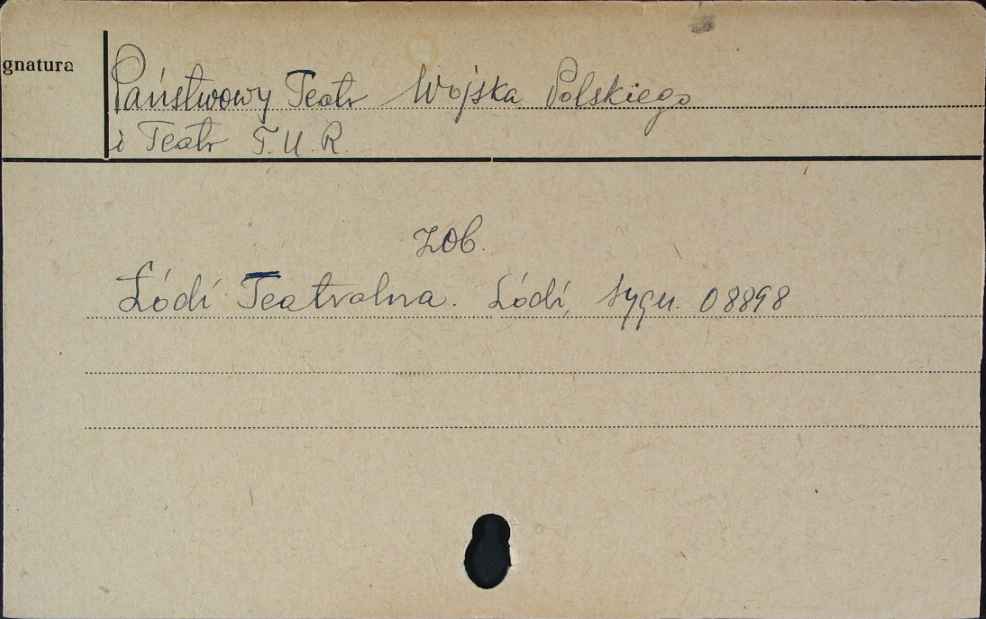 gnatura
Państwowy Teatr Wojska Polskiego
i Teatr T.U.R.
zob.
Łódź Teatralna. Łódź, sygn. 08898